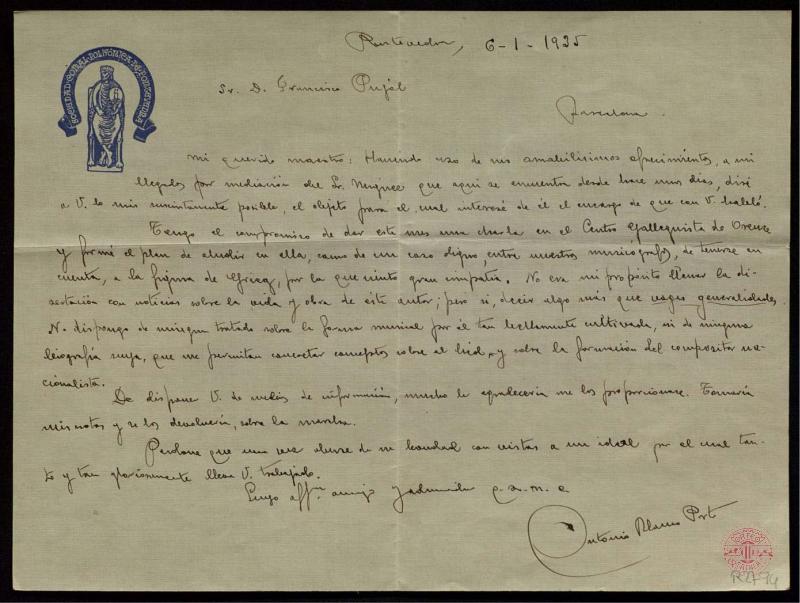 SOCIEDAD CORAL POLIFÓNICA DE PONTEVEDRA
Pontevedra, 6-1-1935
Sr. D. Francisco Pujol
Barcelona
Mi querido maestro: Haciendo uso de sus amabilísimos ofrecimientos, a mi
llegados por mediación del Sr. que aqui se encuentra desde hace unos días, diré
a V. lo mas sucintamente posible, el objeto para el cual interesé de él el encargo de que con V. hablaló.
Tengo el compromiso de dar este mes una charla en el Centro Galleguista de Orense
y formé el plan de aludir en ella, como de un caso digno, entre nuestros musicografos, de tenerse en
cuenta, a la figura de Grieg, por la que siento gran simpatia. No era mi propósito llenar la di-
sertación con noticias sobre la vida y obra de este autor; pero si, decir algo más que vagas generalidades.
No dispongo de ningun tratado sobre la forma musical por él tan bellamente cultivada, ni de ninguna
biografía suya, que me permitan concretar conceptos sobre el lied, y sobre la formación del compositor na-
cionalista.
De disponer V. de medios de información, mucho le agradecería me los proporcionase. Tomaría
mis notas y se los devolvería, sobre la marcha.
Perdone que una vez abuse de su bondad con vistas a un ideal por el cual tan-
to y tan gloriosamente lleva V. trabajado.
Suyo affmo. amigo y admirador q. e. s. m. e
Antonio Blanco Porto
ORFEÓ CATALÀ